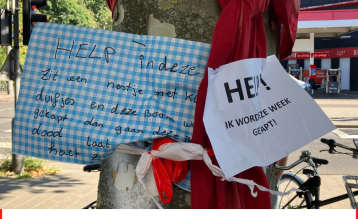 HELP in deze
Zit een nestje met
duifjes en deze boom
gekapt dan gaan de
dood
HELP!
IK WORDZE WEEK
GEAPT!